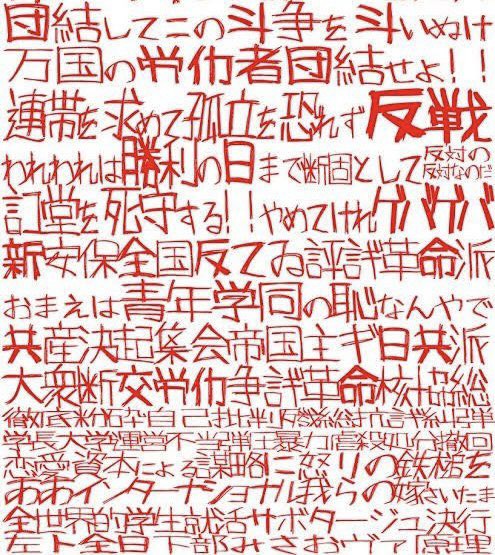 団結してこの斗争を斗いぬけ
万国の労仂者団結せよ！！
連帯を求めて孤立を恐れず反戦
われわれは勝利の日まで断固として反対の反対なのだ
講堂を死守する！！やめてけれゲバゲバ
新安保全国反てゐ評議革命派
おまえは青年学同の恥なんやで
共産決起集会帝国主ギ日共派
大衆断交労仂争議革命核協総
徹底粉砕自己批判
学長大学運営不当弾圧暴力虐殺処分撤回
恋愛資本による謀略に怒りの鉄槌を
ああインターナショナル我らの嫁さいたま
全世界的学生就活サボタージュ決行